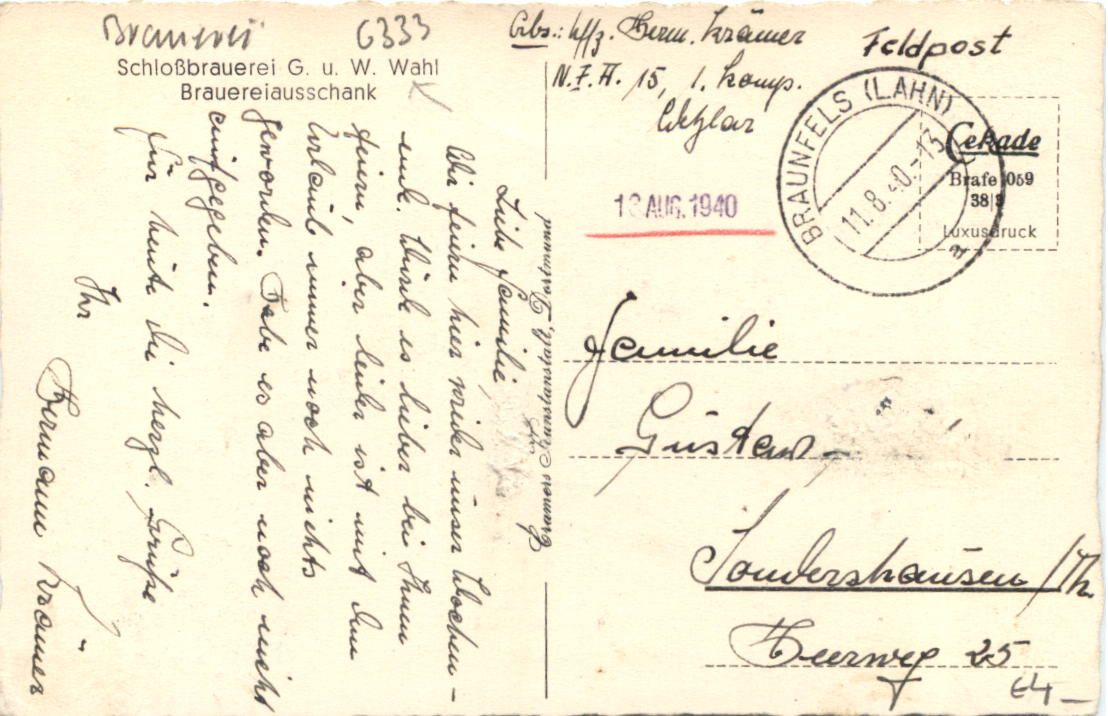 Brauerei 6333
Schloßbrauerei G. u. W. Wahl
Brauereiausschank
Abs.: Uffz. Herm. Krämer
N.F.A. 15, 1. Komp.
Wetzlar
Feldpost
13 AUG. 1940
BRAUNFELS (LAHN)
11.8.40.-13
a
Cekade
Brafe 059
38|9
Luxusdruck
Liebe Familie,
Wir feiern hier wieder unser Wochen-
ende. Würde es lieber bei Ihnen
feiern, aber leider ist mit dem
Urlaub immer noch nichts
geworden. Habe es aber noch nicht
aufgegeben.
Für heute die herzl. Grüße
Ihr
Hermann Krämer
Familie
Gustav
Sondershausen/Th.
Heerweg 25